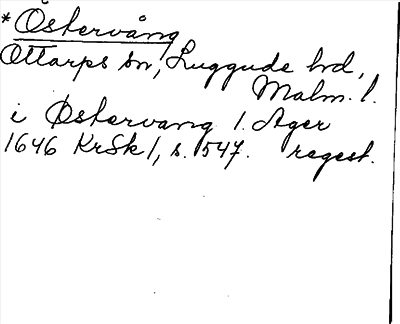 *Östervång
Ottarps sn, Luggude hd,
Malm. l.
i Østervang 1. Ager
1646 KrSk 1, s. 547. regest.